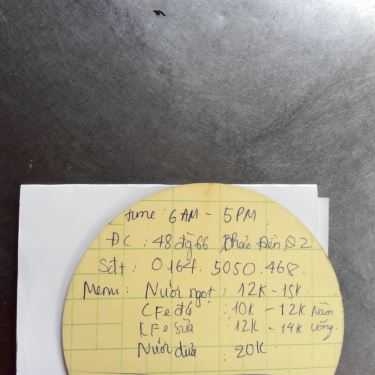 time: 6 AM - 5 PM
ĐC : 48 đg 66 Thảo Điền Q2
Sđt : 0164. 5050. 468
Menu : Nước ngọt : 12K - 15K
CFe đá : 10K - 12K
CFe sữa : 12K - 14K
Nước dừa : 20K